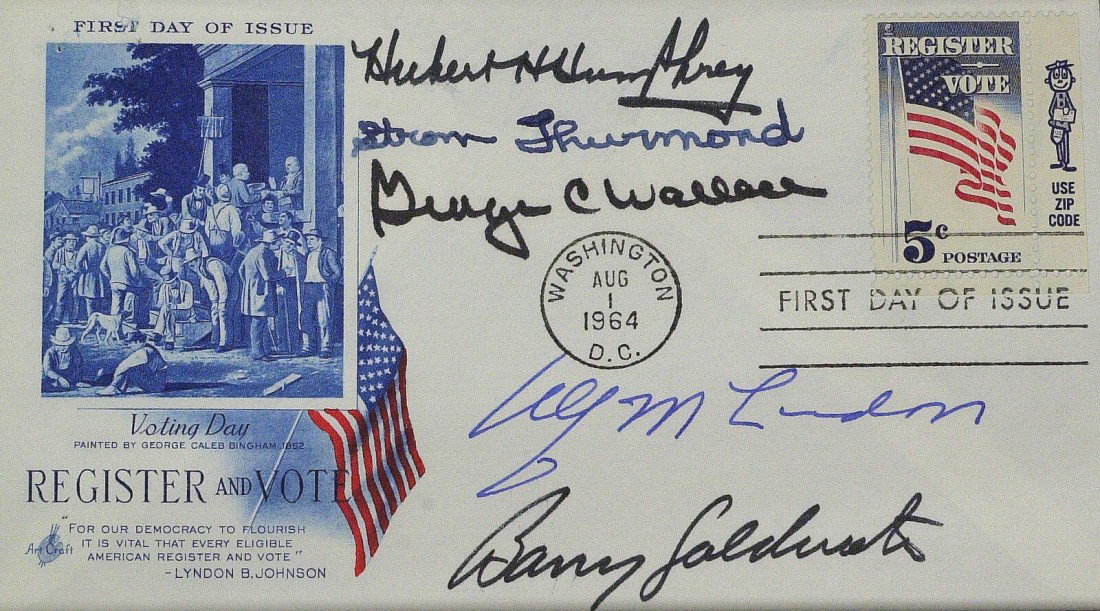 FIRST DAY OF ISSUE
Hubert H Humphrey
Strom Thurmond
George C Wallace
REGISTER
VOTE
USE
ZIP
CODE
5c POSTAGE
WASHINGTON
AUG
1
1964
D.C.
FIRST DAY OF ISSUE
Alf M Landon
Barry Goldwater
Voting Day
PAINTED BY GEORGE CALEB BINGHAM, 1852
REGISTER AND VOTE
"FOR OUR DEMOCRACY TO FLOURISH
IT IS VITAL THAT EVERY ELIGIBLE
AMERICAN REGISTER AND VOTE"
-LYNDON B. JOHNSON
Art Craft